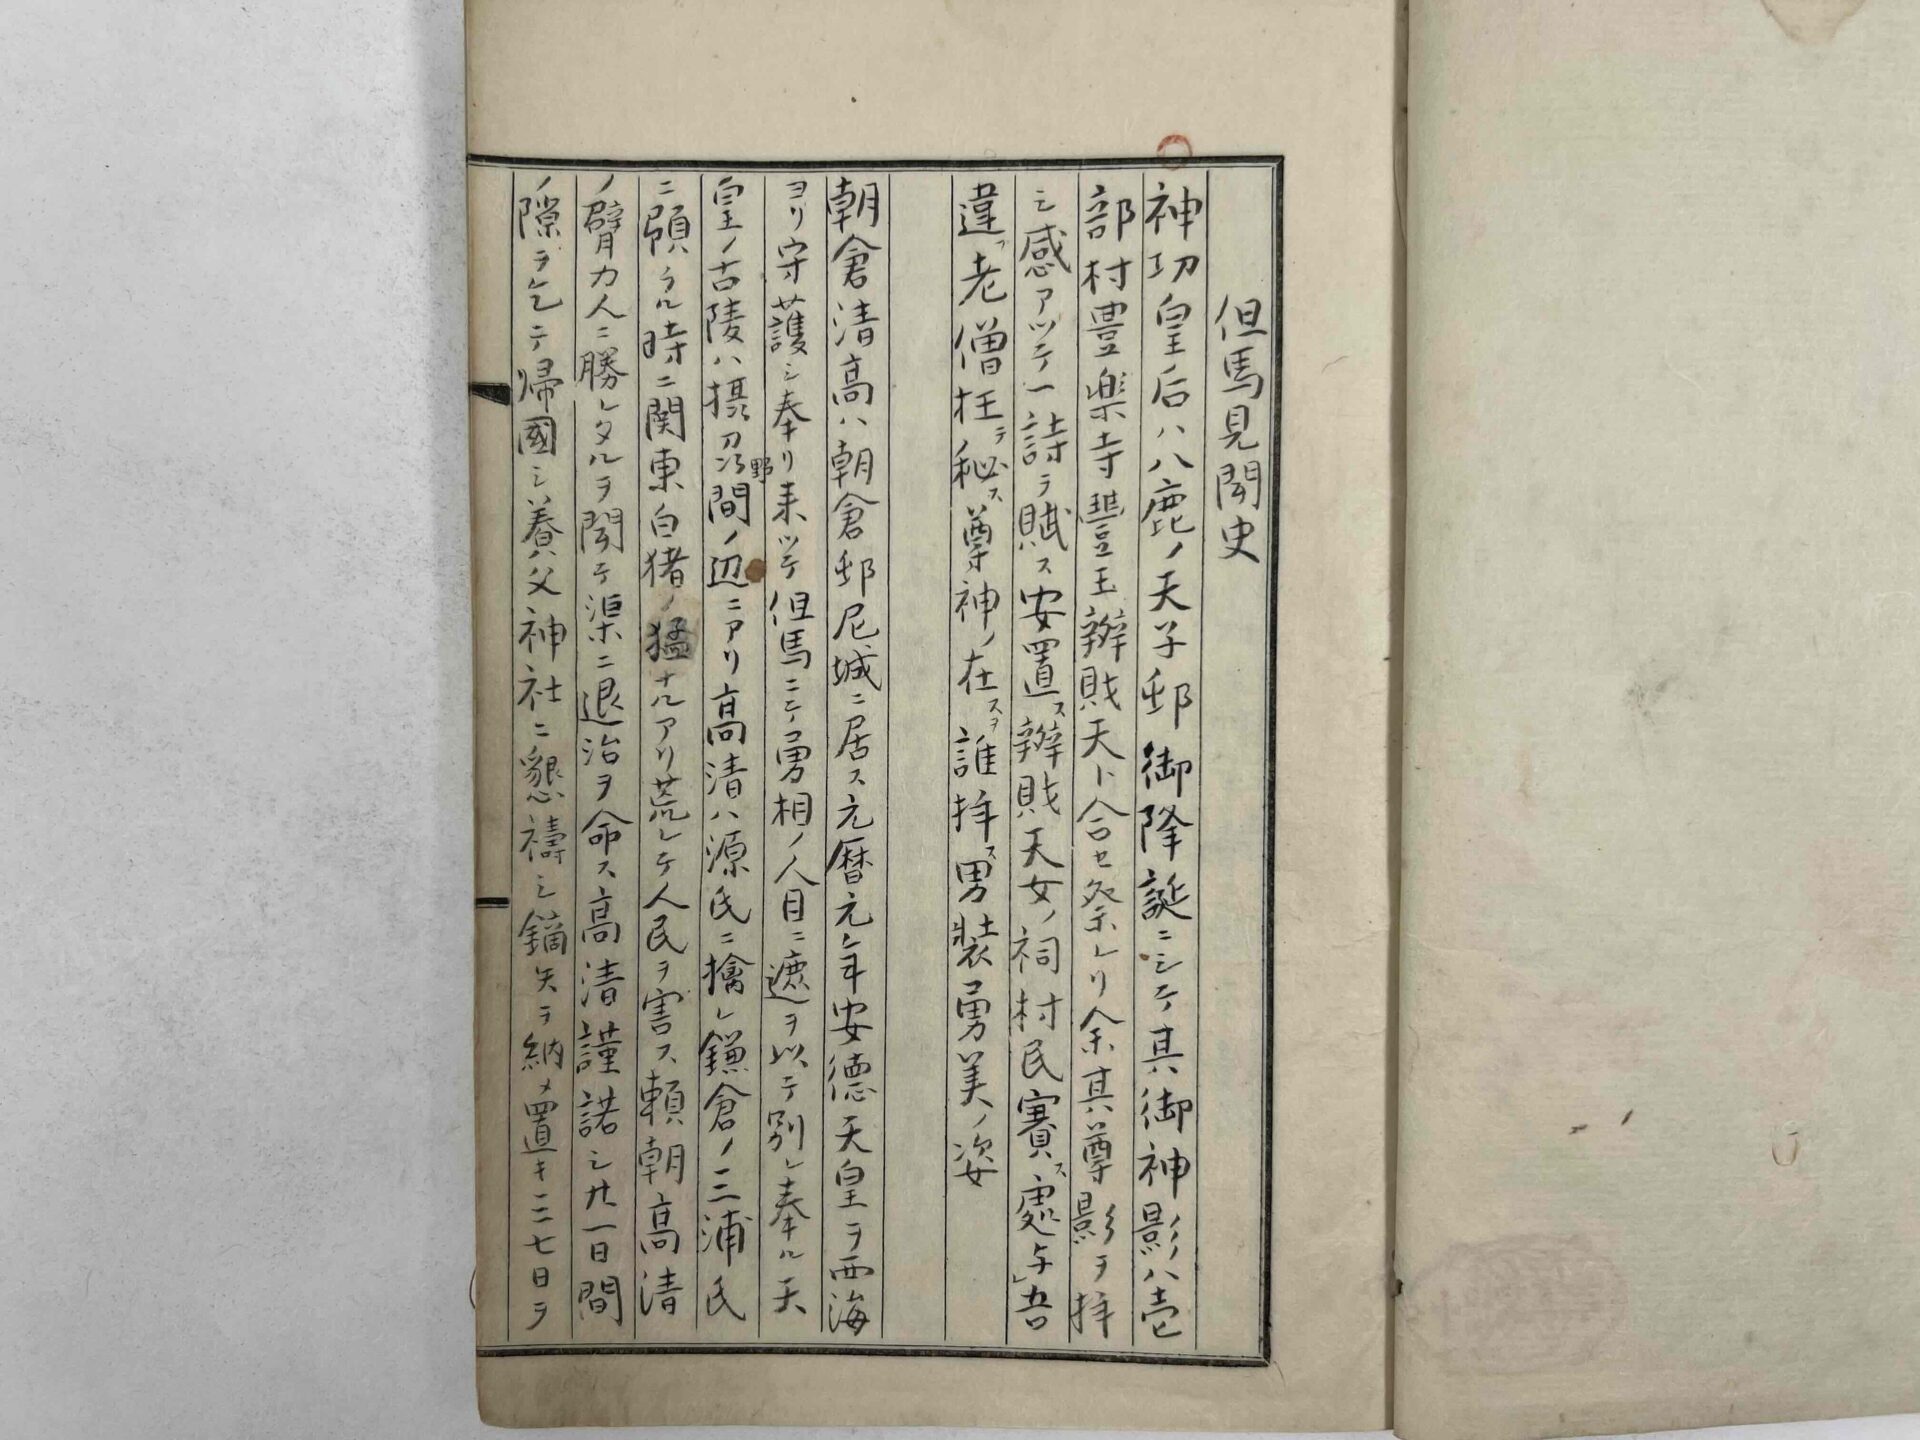 但馬見聞史
神功皇后ハ八鹿ノ天子邨御降誕ニシテ其御神影ハ壱
部村豊楽寺豊玉辧財天ト合セ祭レリ余其尊影ヲ拝
シ感アツテ一詩ヲ賦ス安置ス辧財天女ノ祠村民賽ス處与吾
違フ老僧枉テ秘ス尊神ノ在スヲ誰拝ス男装勇美ノ姿
朝倉清高ハ朝倉邨尼城ニ居ス元暦元年安徳天皇ヲ西海
ヨリ守護シ奉リ来ツテ但馬ニテ勇相ノ人目ニ遮ヲ以テ別レ奉ル天
皇ノ古陵ハ摂刕野間ノ辺ニアリ高清ハ源氏ニ擒レ鎌倉ノ三浦氏
ニ預ラル時ニ関東白猪ノ猛ナルアリ荒レテ人民ヲ害ス頼朝高清
ノ臂力人ニ勝レタルヲ聞テ渠ニ退治ヲ命ス高清謹諾シ廿一日間
ノ隙ヲ乞テ帰國シ養父神社ニ懇禱シ鏑矢ヲ納メ置キ三七日ヲ